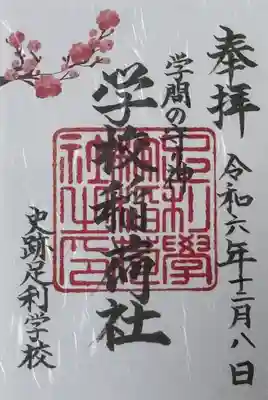 奉拝
令和六年十二月八日
学問の守り神
学校稲荷社
史跡足利学校